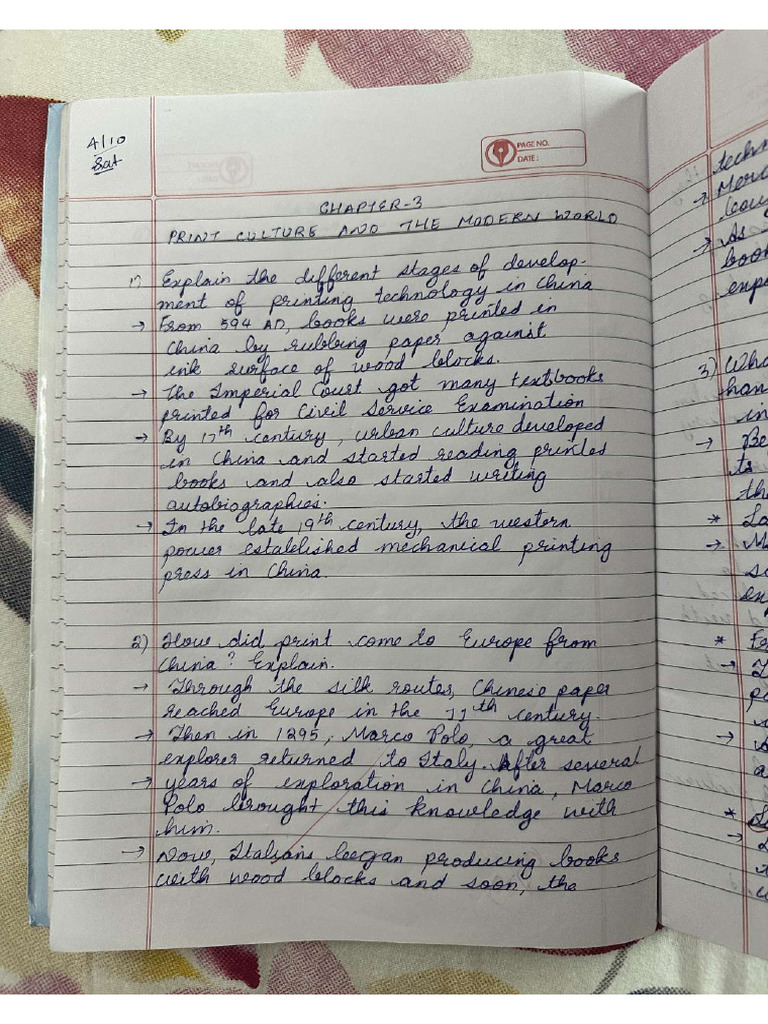 4/10
Sat
PAGE NO.
DATE:
CHAPTER-3
PRINT CULTURE AND THE MODERN WORLD
1) Explain the different stages of develop-
ment of printing technology in China
→ From 594 AD, books were printed in
China by rubbing paper against
ink surface of wood blocks.
→ The Imperial Court got many textbooks
printed for Civil Service Examination
→ By 17th century, urban culture developed
in China and started reading printed
books and also started writing
autobiographies.
→ In the late 19th century, the western
power established mechanical printing
press in China.
2) How did print come to Europe from
China? Explain.
→ Through the silk routes, Chinese paper
reached Europe in the 11th century.
→ Then in 1295, Marco Polo, a great
explorer returned to Italy. After several
→ years of exploration in China, Marco
Polo brought this knowledge with
him.
→ Now, Italians began producing books
with wood blocks and soon, the
→
→ As
3)
in
→
*
→
*
→
→
*
→